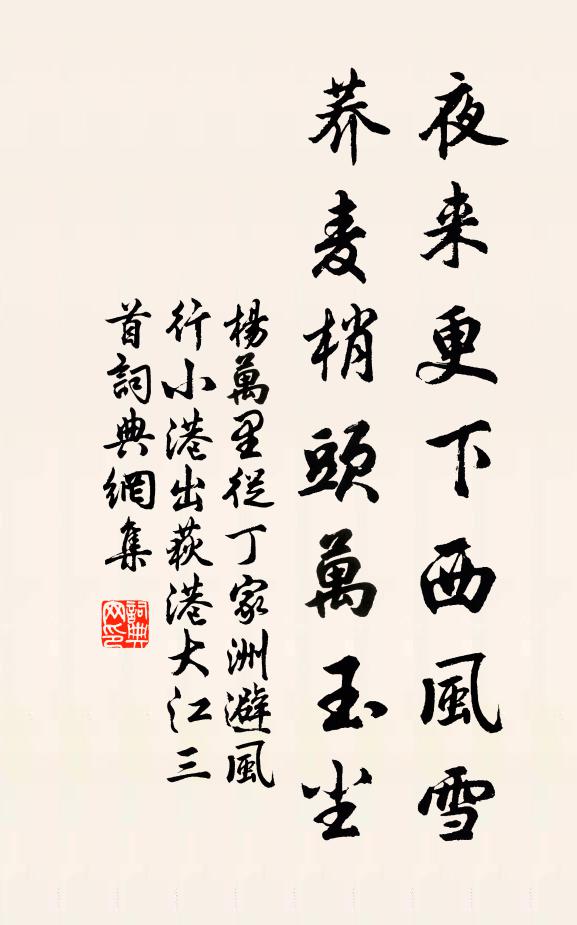 夜来更下西風雪
荞麦梢頭萬玉尘
楊萬里從丁家洲避風
行小港出荻港大江三
首詞典網集
詞典网印